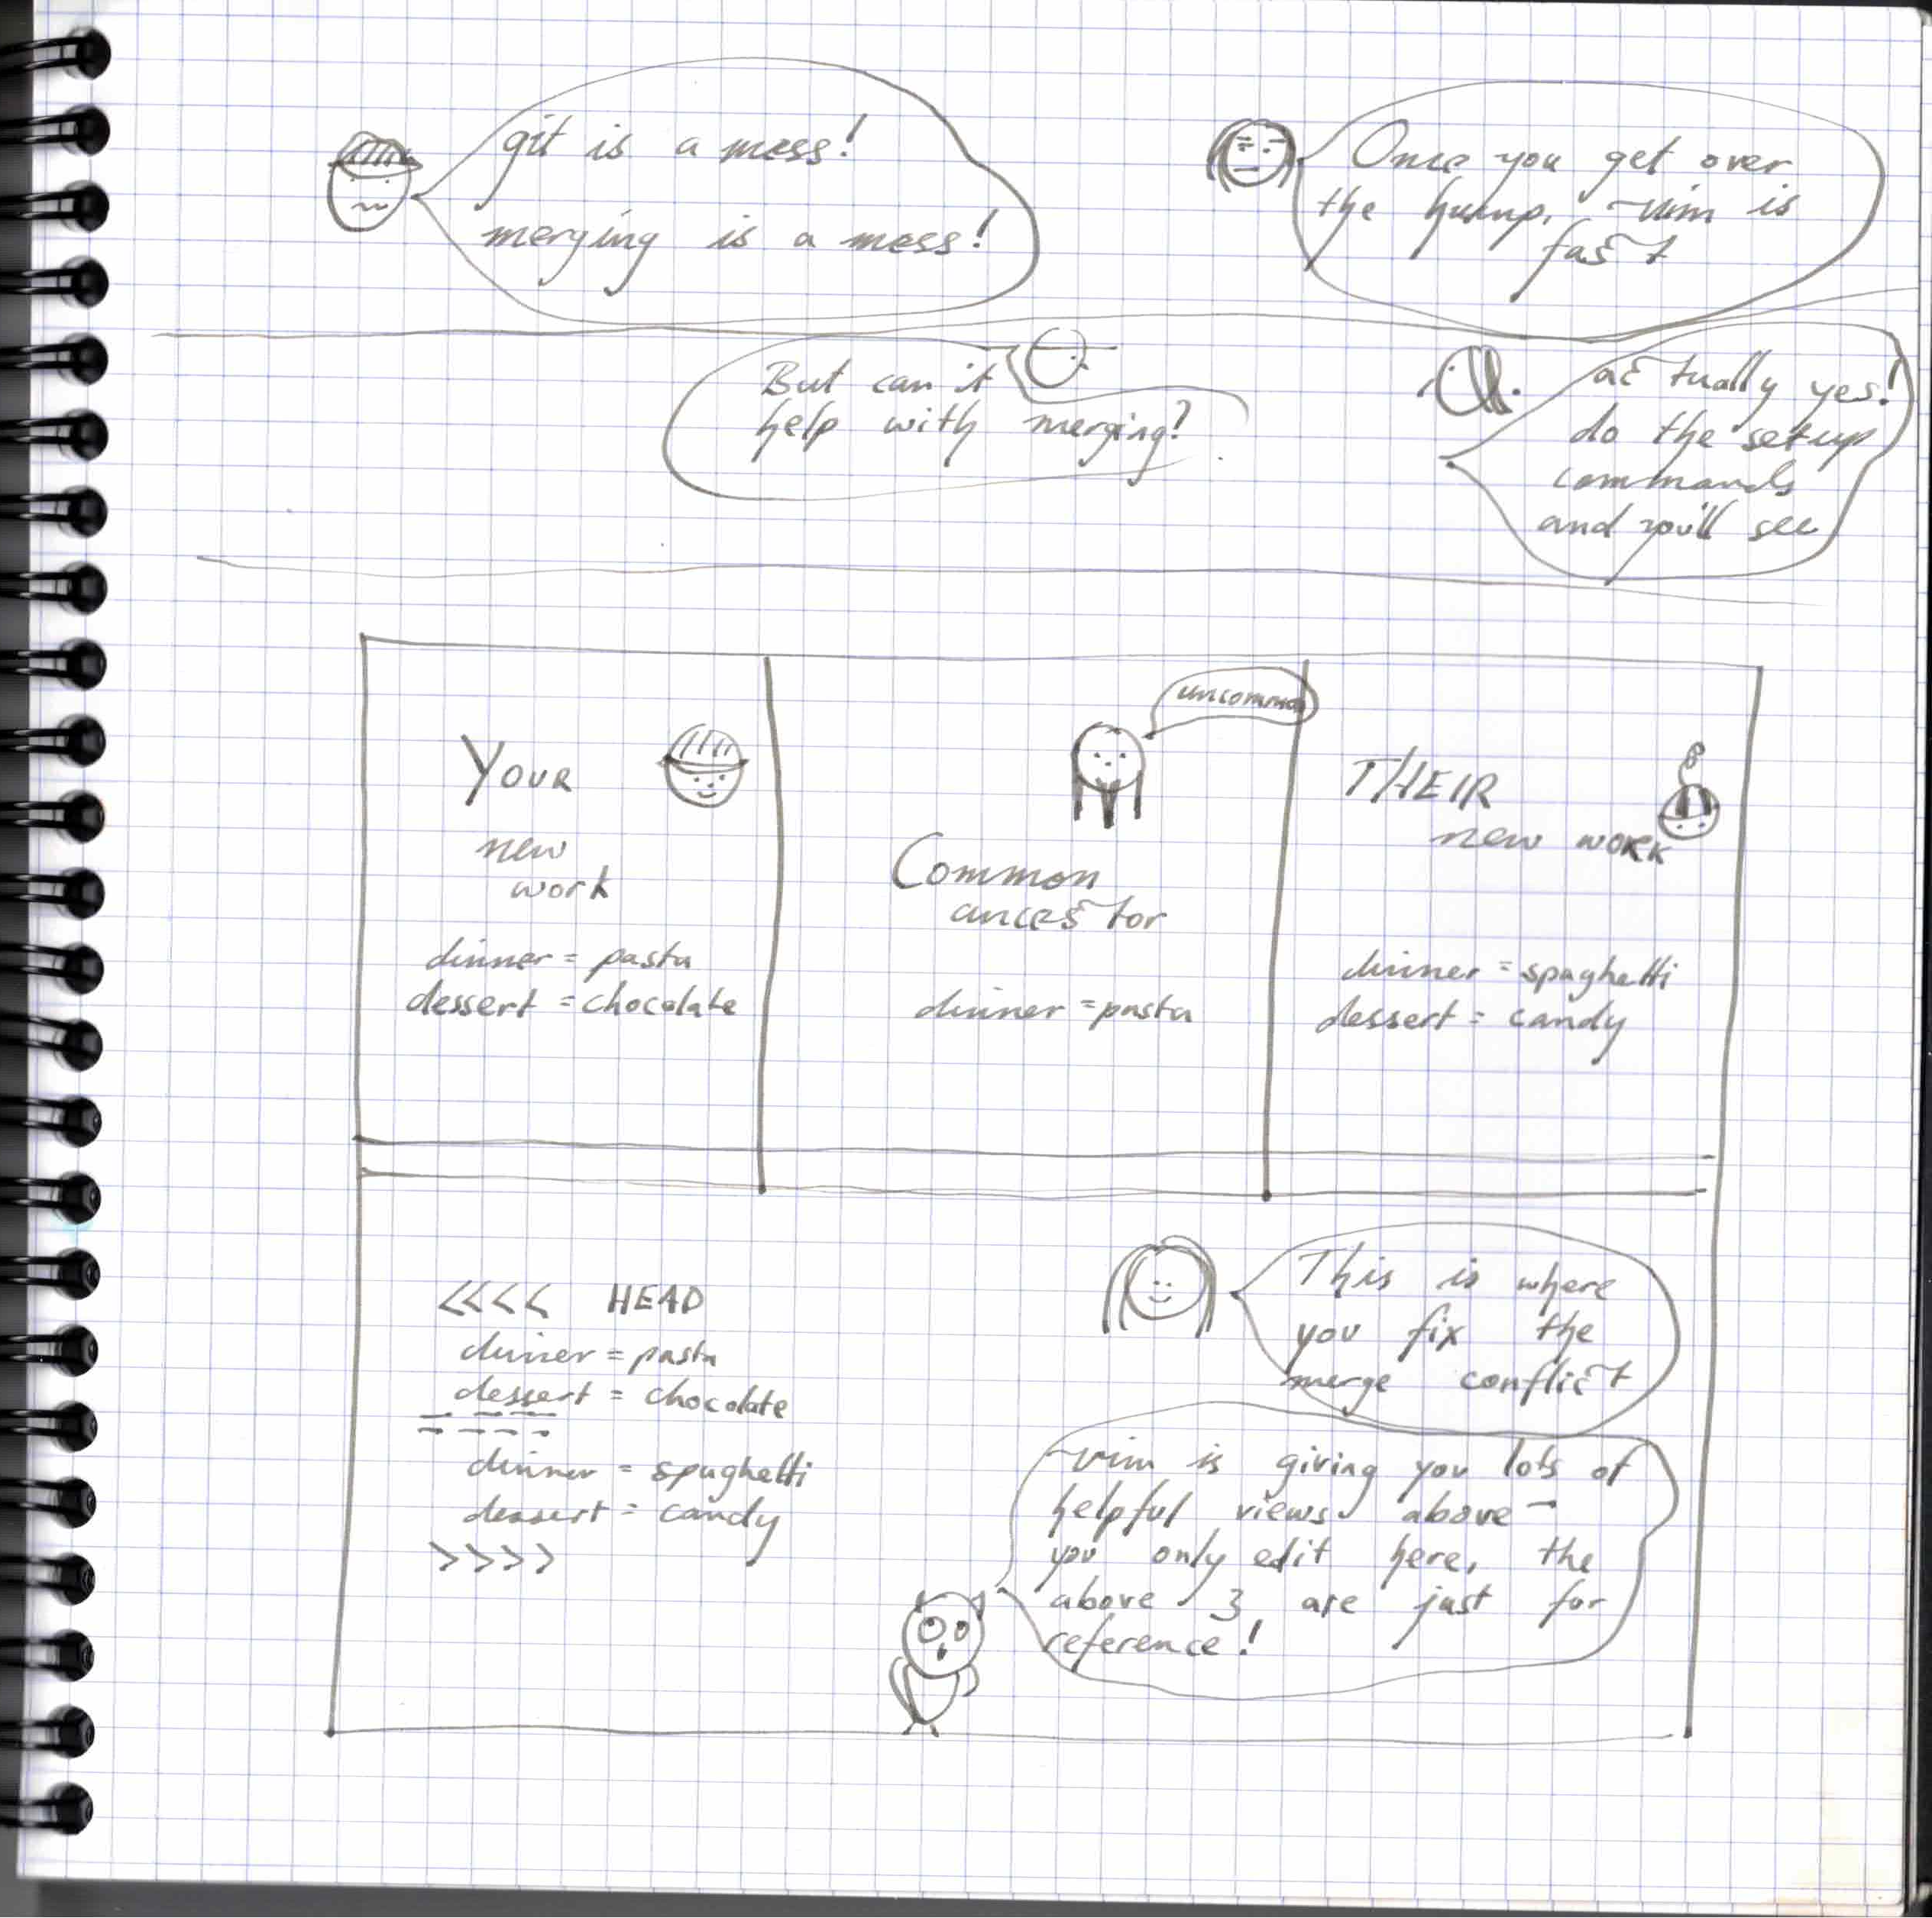 git is a mess!
merging is a mess!
Once you get over
the hump, vim is
fast
But can it
help with merging?
actually yes!
do the setup
commands
and you'll see
YOUR
new
work
dinner = pasta
dessert = chocolate
uncommon
Common
ancestor
dinner = pasta
THEIR
new work
dinner = spaghetti
dessert = candy
<<<< HEAD
dinner = pasta
dessert = chocolate
====
dinner = spaghetti
dessert = candy
>>>>
This is where
you fix the
merge conflict
vim is giving you lots of
helpful views above -
you only edit here, the
above 3 are just for
reference!